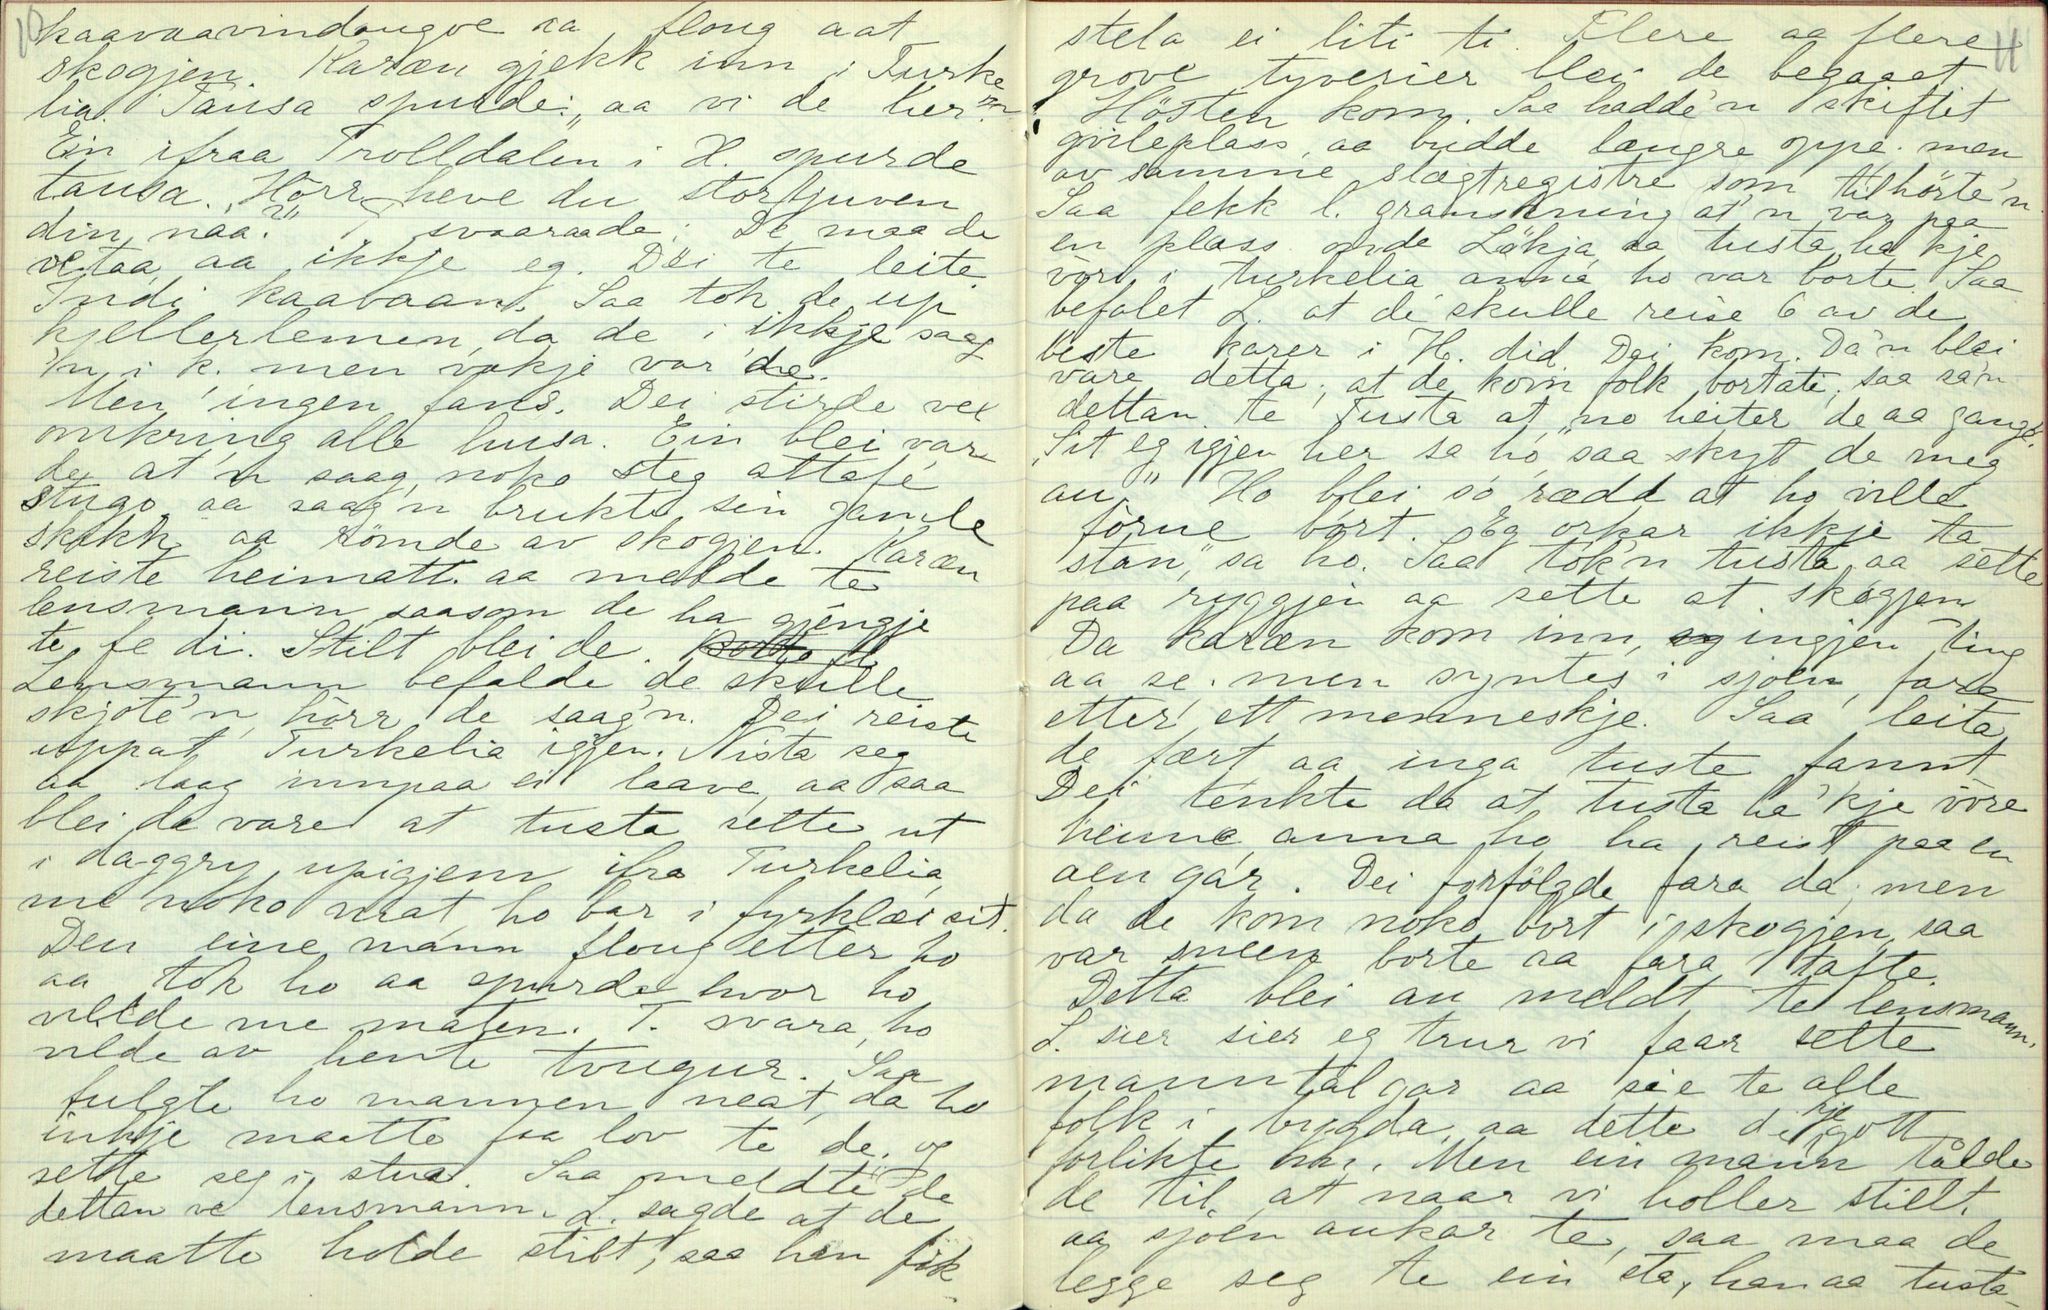 10
kaavaavindaugve aa floug aat
skogjen. Karæn gjekk inn i Turke
lia. Tausa spurde: „aa vi de her?"
Ein ifraa Trolldalen i H. spurde
tausa. „Hörr heve du stortjuven
din, naa?" T svaaraade: De maa de
vetaa, aa ikkje eg. Döi te leite.
Indi kaavaan. Saa tok de up
kjellerlemen, da de i ikkje saag
'n i k. men vakje var de.
Men ingen fans. Dei stirde vel
omkring alle husa. Ein blei var
de at'n saag noko steg attafe
stugo, aa saag'n brukte sin gamle
skikk aa römde av skogjen. Karæn
reiste heimatt. aa melde te
lensmann saasom de ha gjengje
te fe di. Stilt blei de.
Lensmann befalde de skulle
skjote'n, hörr de saag'n. Dei reiste
uppat Turkelia igjen. Nista seg
aa laag innpaa ei laave, aa saa
blei de vare at tusta sette ut
i daggry upigjenn ifra Turkelia,
me noko mat, ho bar i fyrklæi sit.
Den eine mann floug etter ho
aa tok ho aa spurde hvor ho
vilde me maten. T. svara, ho
vilde av hente tougur. Saa
fulgte ho mannen neat, da ho
inkje maatte faa lov te de, og
sette seg i stua. Saa meldte de
dettan ve lensmann. L. sagde at de
maatte holde stilt, saa han fik
11
stela ei liti ti. Flere aa flere
grove tyverier blei de begaaet
Hösten kom. Saa hadde'n skiftet
gvileplass, aa budde længre oppe. men
av samme slægtregistre som tilhörte'n.
Saa fekk l. granskning at'n var paa
en plass onde Lökja, aa tusta ha kje
vöri i Turkelia anna ho var borte. Saa
befalet L. at de skulle reise 6 av de
beste karer i H. did. Dei kom. Da'n blei
vare detta, at de kom folk bortati, saa sa'n
dettan te Tusta at, „no heiter de aa gange.
„Sit eg igjen her sa ho, „saa skyt de meg
au." Ho blei so rædd at ho ville
förne bort. „Eg orkar ikkje ta
stan," sa ho. Saa tok'n tusta aa sette
paa ryggjen aa sette at skogjen
Da karæn kom inn, ingjen ting
aa se. men syntes i sjoen fara
etter ett menneskje. Saa leita
de fært aa inga tuste fannt
Dei tenkte da at tusta ha'kje vöre
heime, anna ho ha reist paa en
aen gar. Dei forfölgde fara da, men
da de kom noko bort i skogjen, saa
var sneen borte aa fara tafte.
Detta blei au meldt te lensmann.
L. sier sier eg trur vi faar sette
manntalgar aa sie te alle
folk i bygda, aa dette di kje gott
forlikte han. Men ein mann talde
de til, at naar vi holler stilt,
aa sjoen aukar te, saa maa de
legge seg te ein sta, han aa tusta